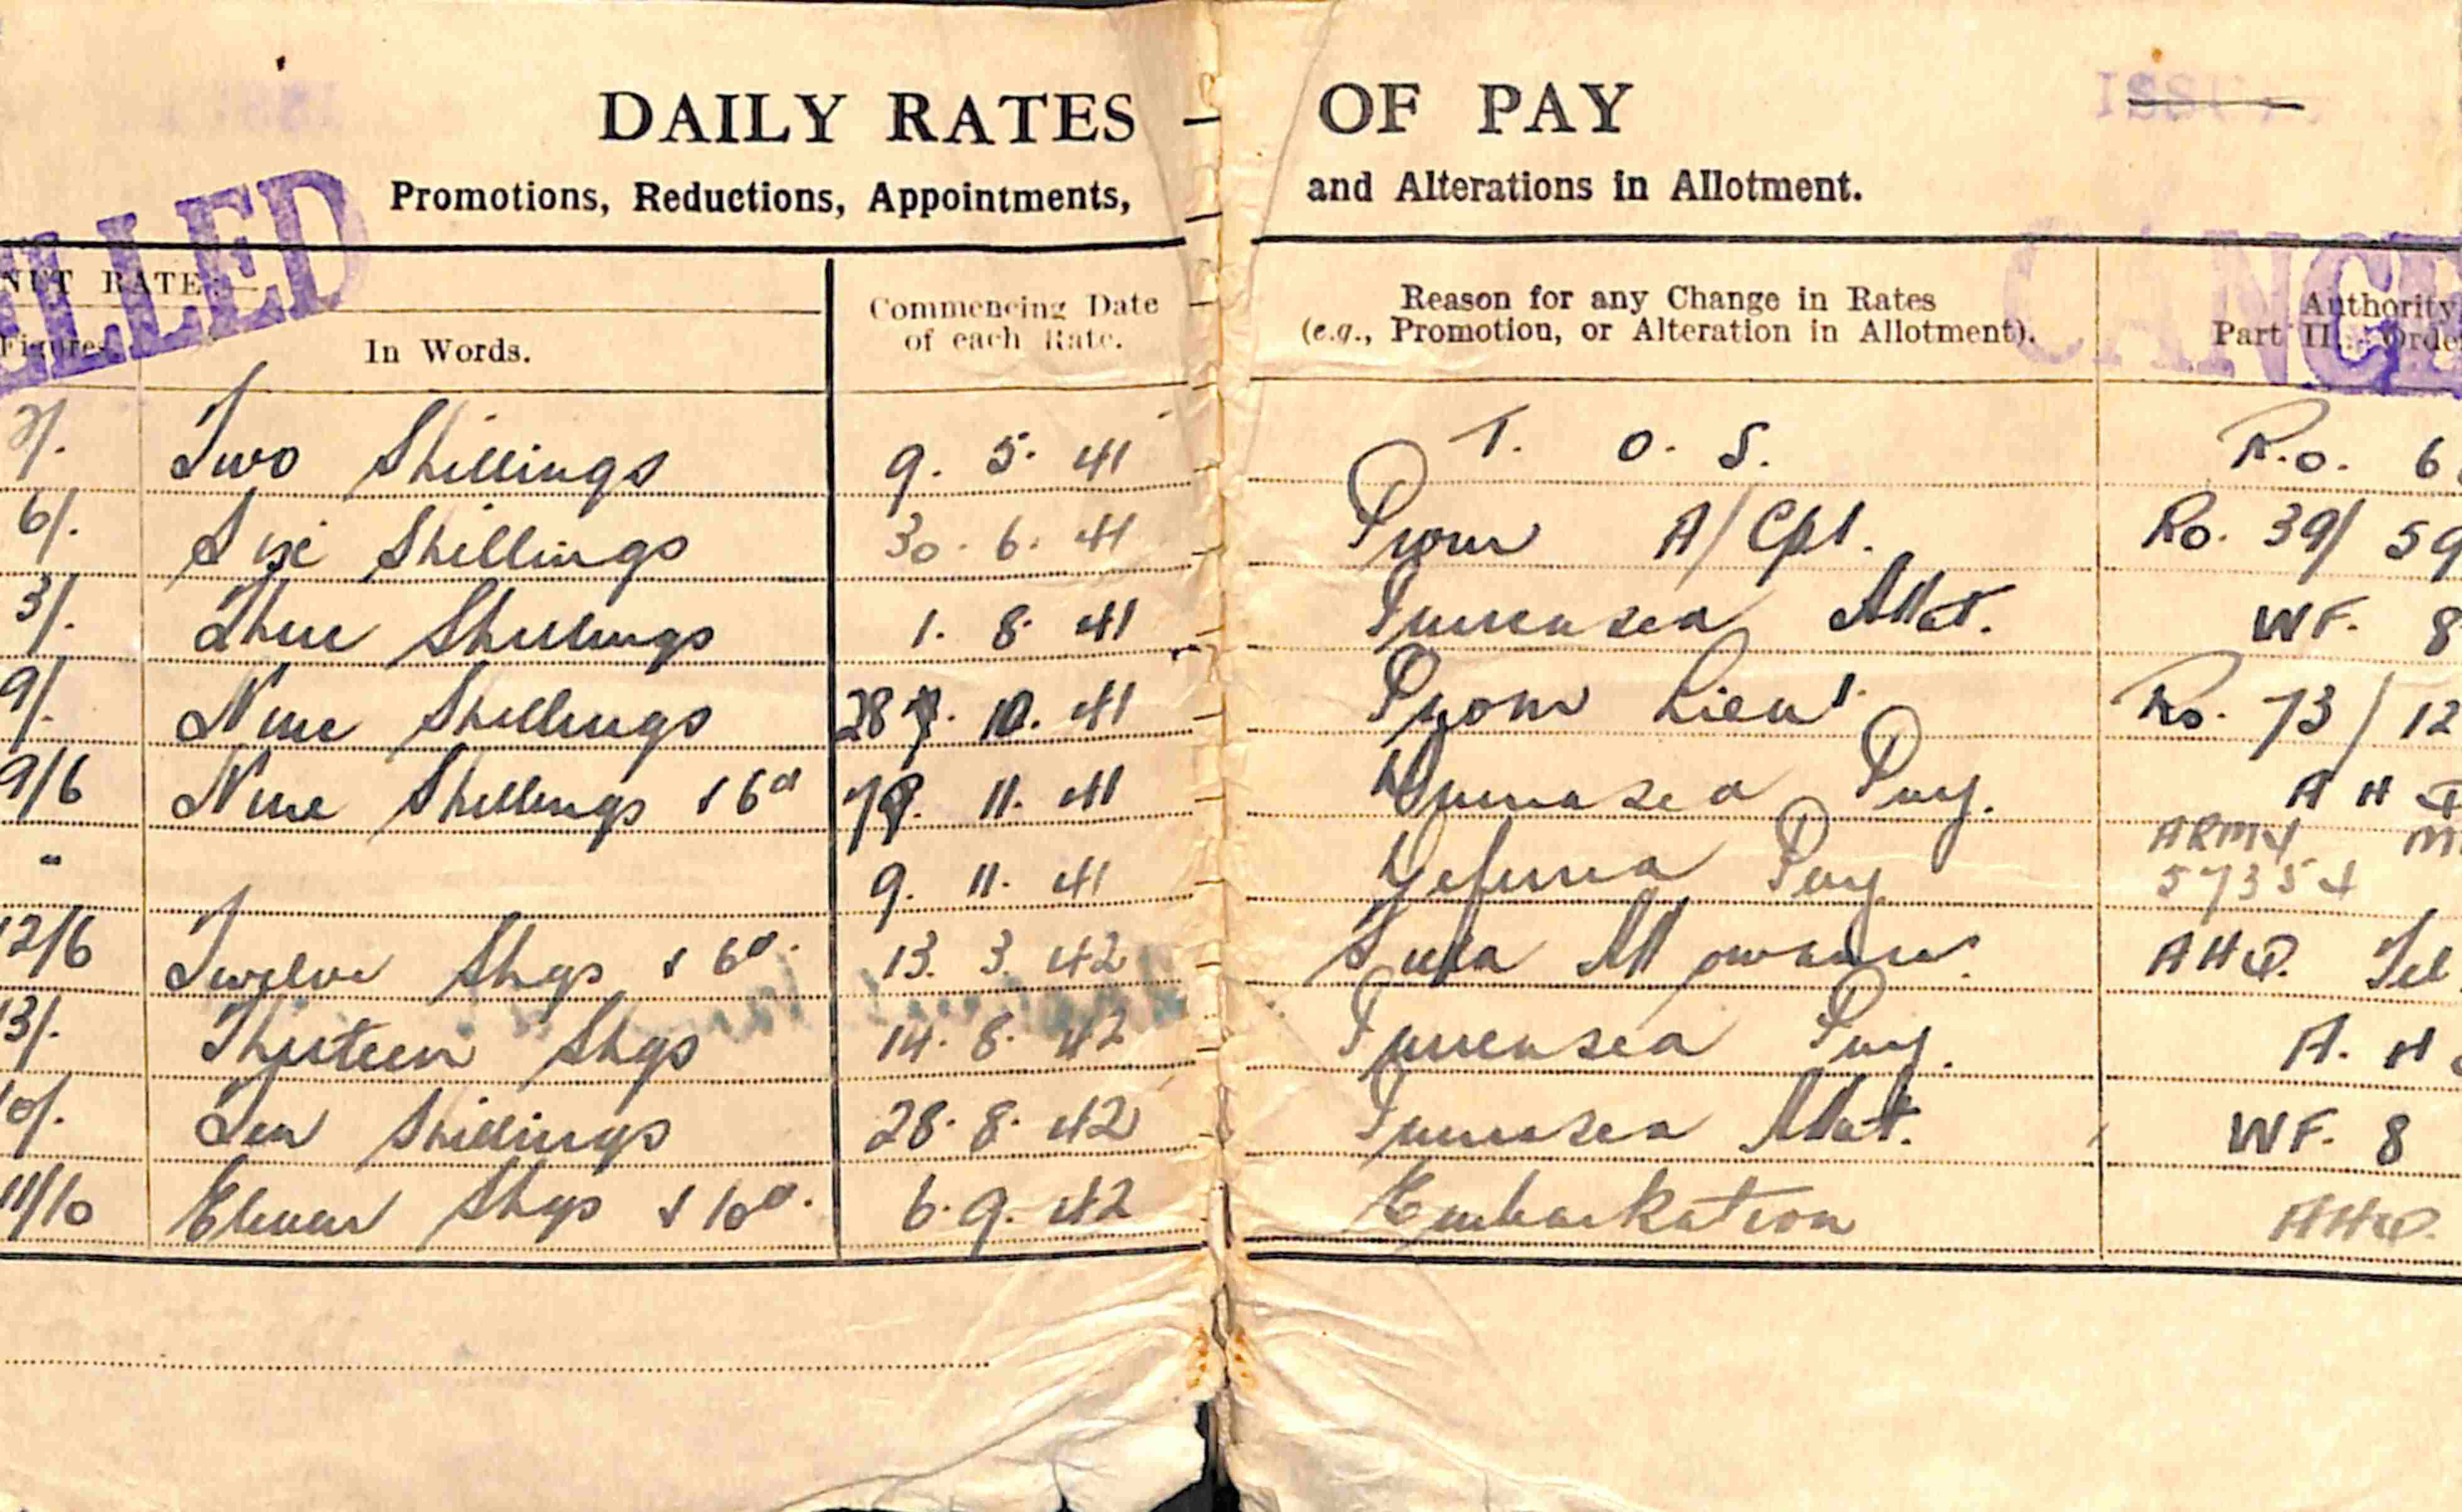 DAILY RATES - OF PAY
Promotions, Reductions, Appointments, and Alterations in Allotment.
CANCE
LLED
NET RATE:—
Figures In Words. Commencing Date of each Rate. Reason for any Change in Rates (e.g., Promotion, or Alteration in Allotment). Authority Part II. Orde
2/. Two Shillings 9. 5. 41 T. O. S. R.O. 6
6/. Six Shillings 30. 6. 41 Prom A/Cpl. Ro. 39/ 59
3/. Three Shillings 1. 8. 41 Increased Allot. WF. 8
9/. Nine Shillings 28 10. 41 Prom Lieut. Ro. 73/12
9/6 Nine Shillings & 6d 11. 41 Increased Pay. A H
- 9. 11. 41 Deferred Pay ARMY 57354
12/6 Twelve Shgs & 6d. 13. 3. 42 Allowance. AHQ. Tel
13/. Thirteen Shgs 14. 8. 42 Increased Pay. A. H
10/. Ten Shillings 28. 8. 42 Increased Allot. WF. 8
11/10 Eleven Shgs & 10d. 6. 9. 42 Embarkation AHQ.